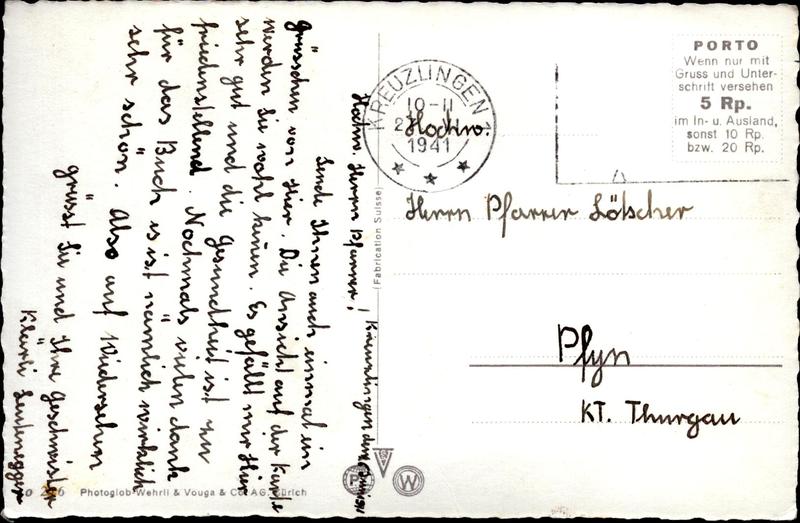 Hochw. Herrn Pfarrer! Kreuzlingen den
Sende Ihnen auch einmal ein
Grüsschen von Hier. Die Ansicht auf der Karte
werden Sie wohl kennen. Es gefällt mir Hier
sehr gut und die Gesundheit ist zu
friedenstellend. Nochmals vielen dank
für das Buch es ist nämlich wirklich
sehr schön. Also auf Wiedersehen
grüsst Sie und Ihre Geschwister
Klärli Leutenegger
Photoglob-Wehrli & Vouga & Co. AG. Zürich
(Fabrication Suisse)
P
V
W
KREUZLINGEN 1
10-11
1941
PORTO
Wenn nur mit
Gruss und Unter-
schrift versehen
5 Rp.
im In- u. Ausland,
sonst 10 Rp.
bzw. 20 Rp.
Hochw.
Herrn Pfarrer Lötscher
Pfyn
KT. Thurgau